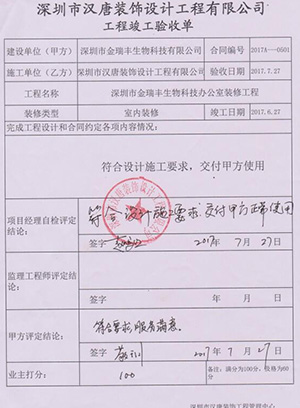 深圳市汉唐装饰设计工程有限公司
工程竣工验收单
建设单位（甲方） 深圳市金瑞丰生物科技有限公司 合同编号 2017A---0501
施工单位（乙方） 深圳市汉唐装饰设计工程有限公司 验收日期 2017.7.27
工程名称 深圳市金瑞丰生物科技办公室装修工程
装修类型 室内装修 竣工日期 2017.6.27
完成工程设计和合同约定各项内容情况：
符合设计施工要求，交付甲方使用
项目经理自检评定结论：
符合设计施工要求交付甲方正常使用
签字 2017年7月27日
监理工程师评定结论：
签字 年 月 日
甲方评定结论：
符合要求，服务满意。
签字 2017年7月27日
业主打分： 100 备注：满分为100分，合格为60分
深圳市汉唐装饰工程管理中心